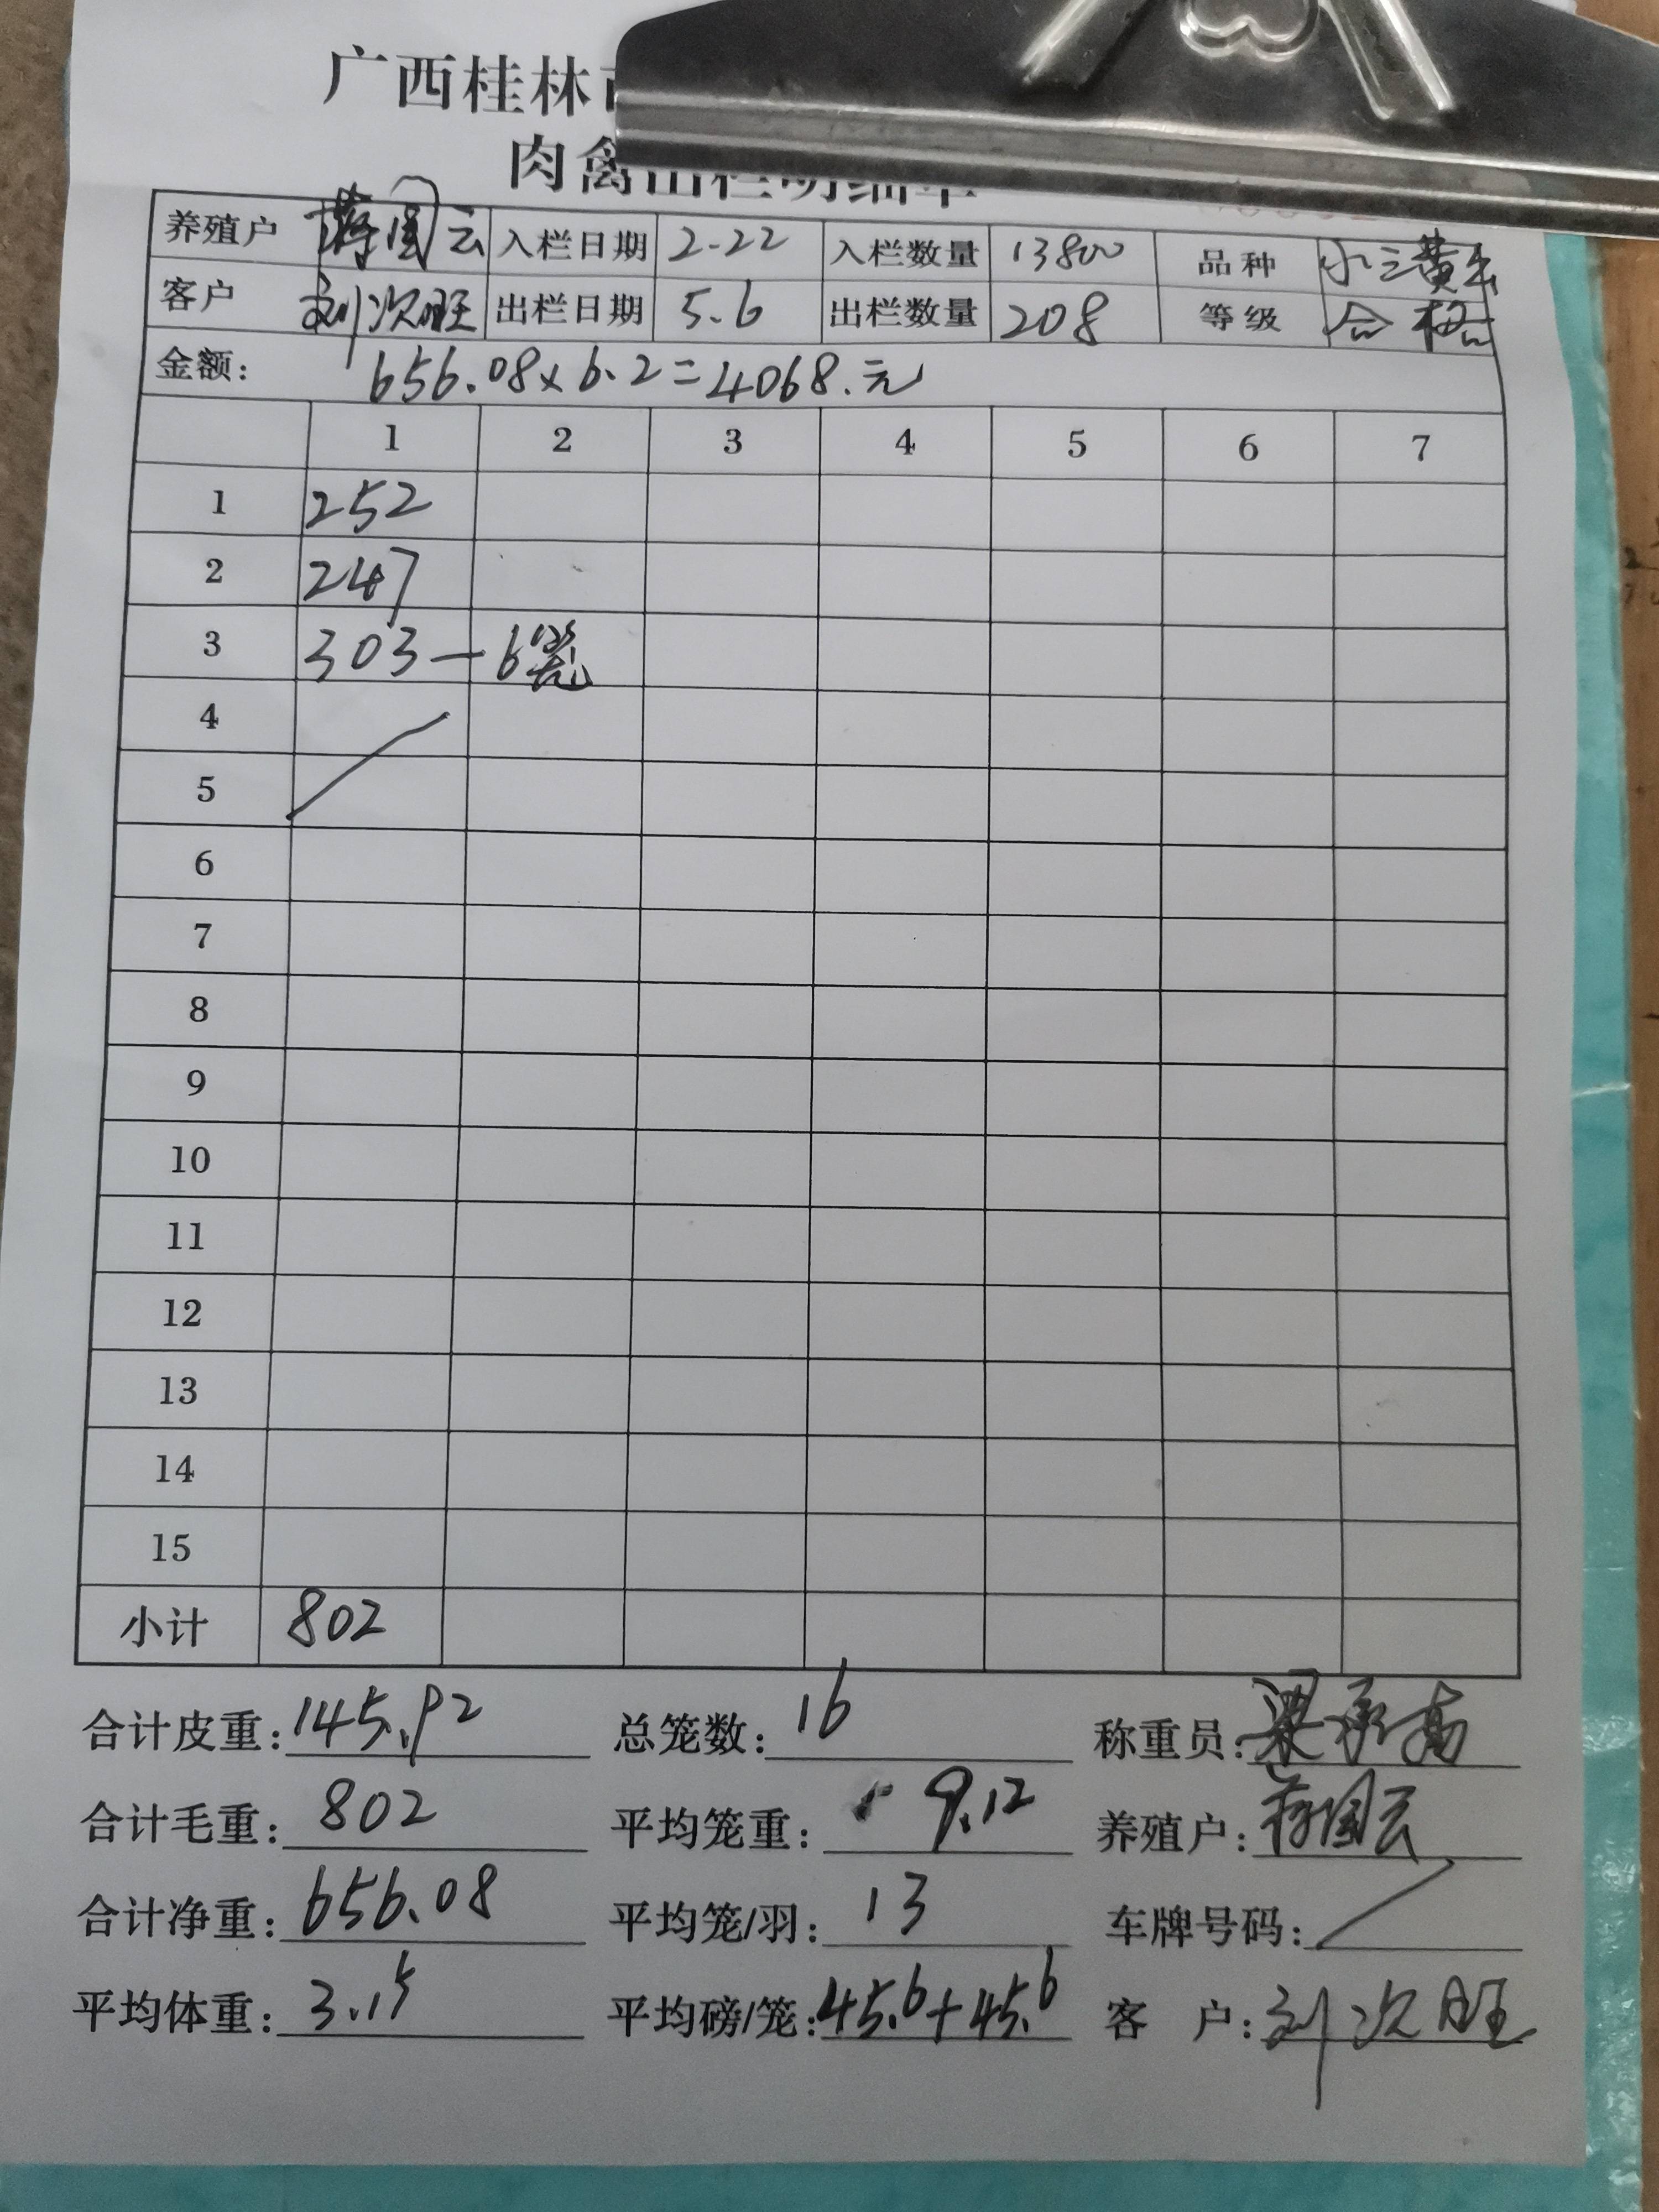 广西桂林
肉禽出栏明细单
养殖户 蒋国云 入栏日期 2-22 入栏数量 13800 品种 小三黄
客户 刘次旺 出栏日期 5.6 出栏数量 208 等级 合格
金额: 656.08×6.2=4068.元
1 2 3 4 5 6 7
1 252
2 247
3 303—6笼
4
5
6
7
8
9
10
11
12
13
14
15
小计 802
合计皮重: 145.92 总笼数: 16 称重员: 梁承高
合计毛重: 802 平均笼重: 9.12 养殖户: 蒋国云
合计净重: 656.08 平均笼/羽: 13 车牌号码:
平均体重: 3.15 平均磅/笼: 45.6+45.6 客 户: 刘次旺